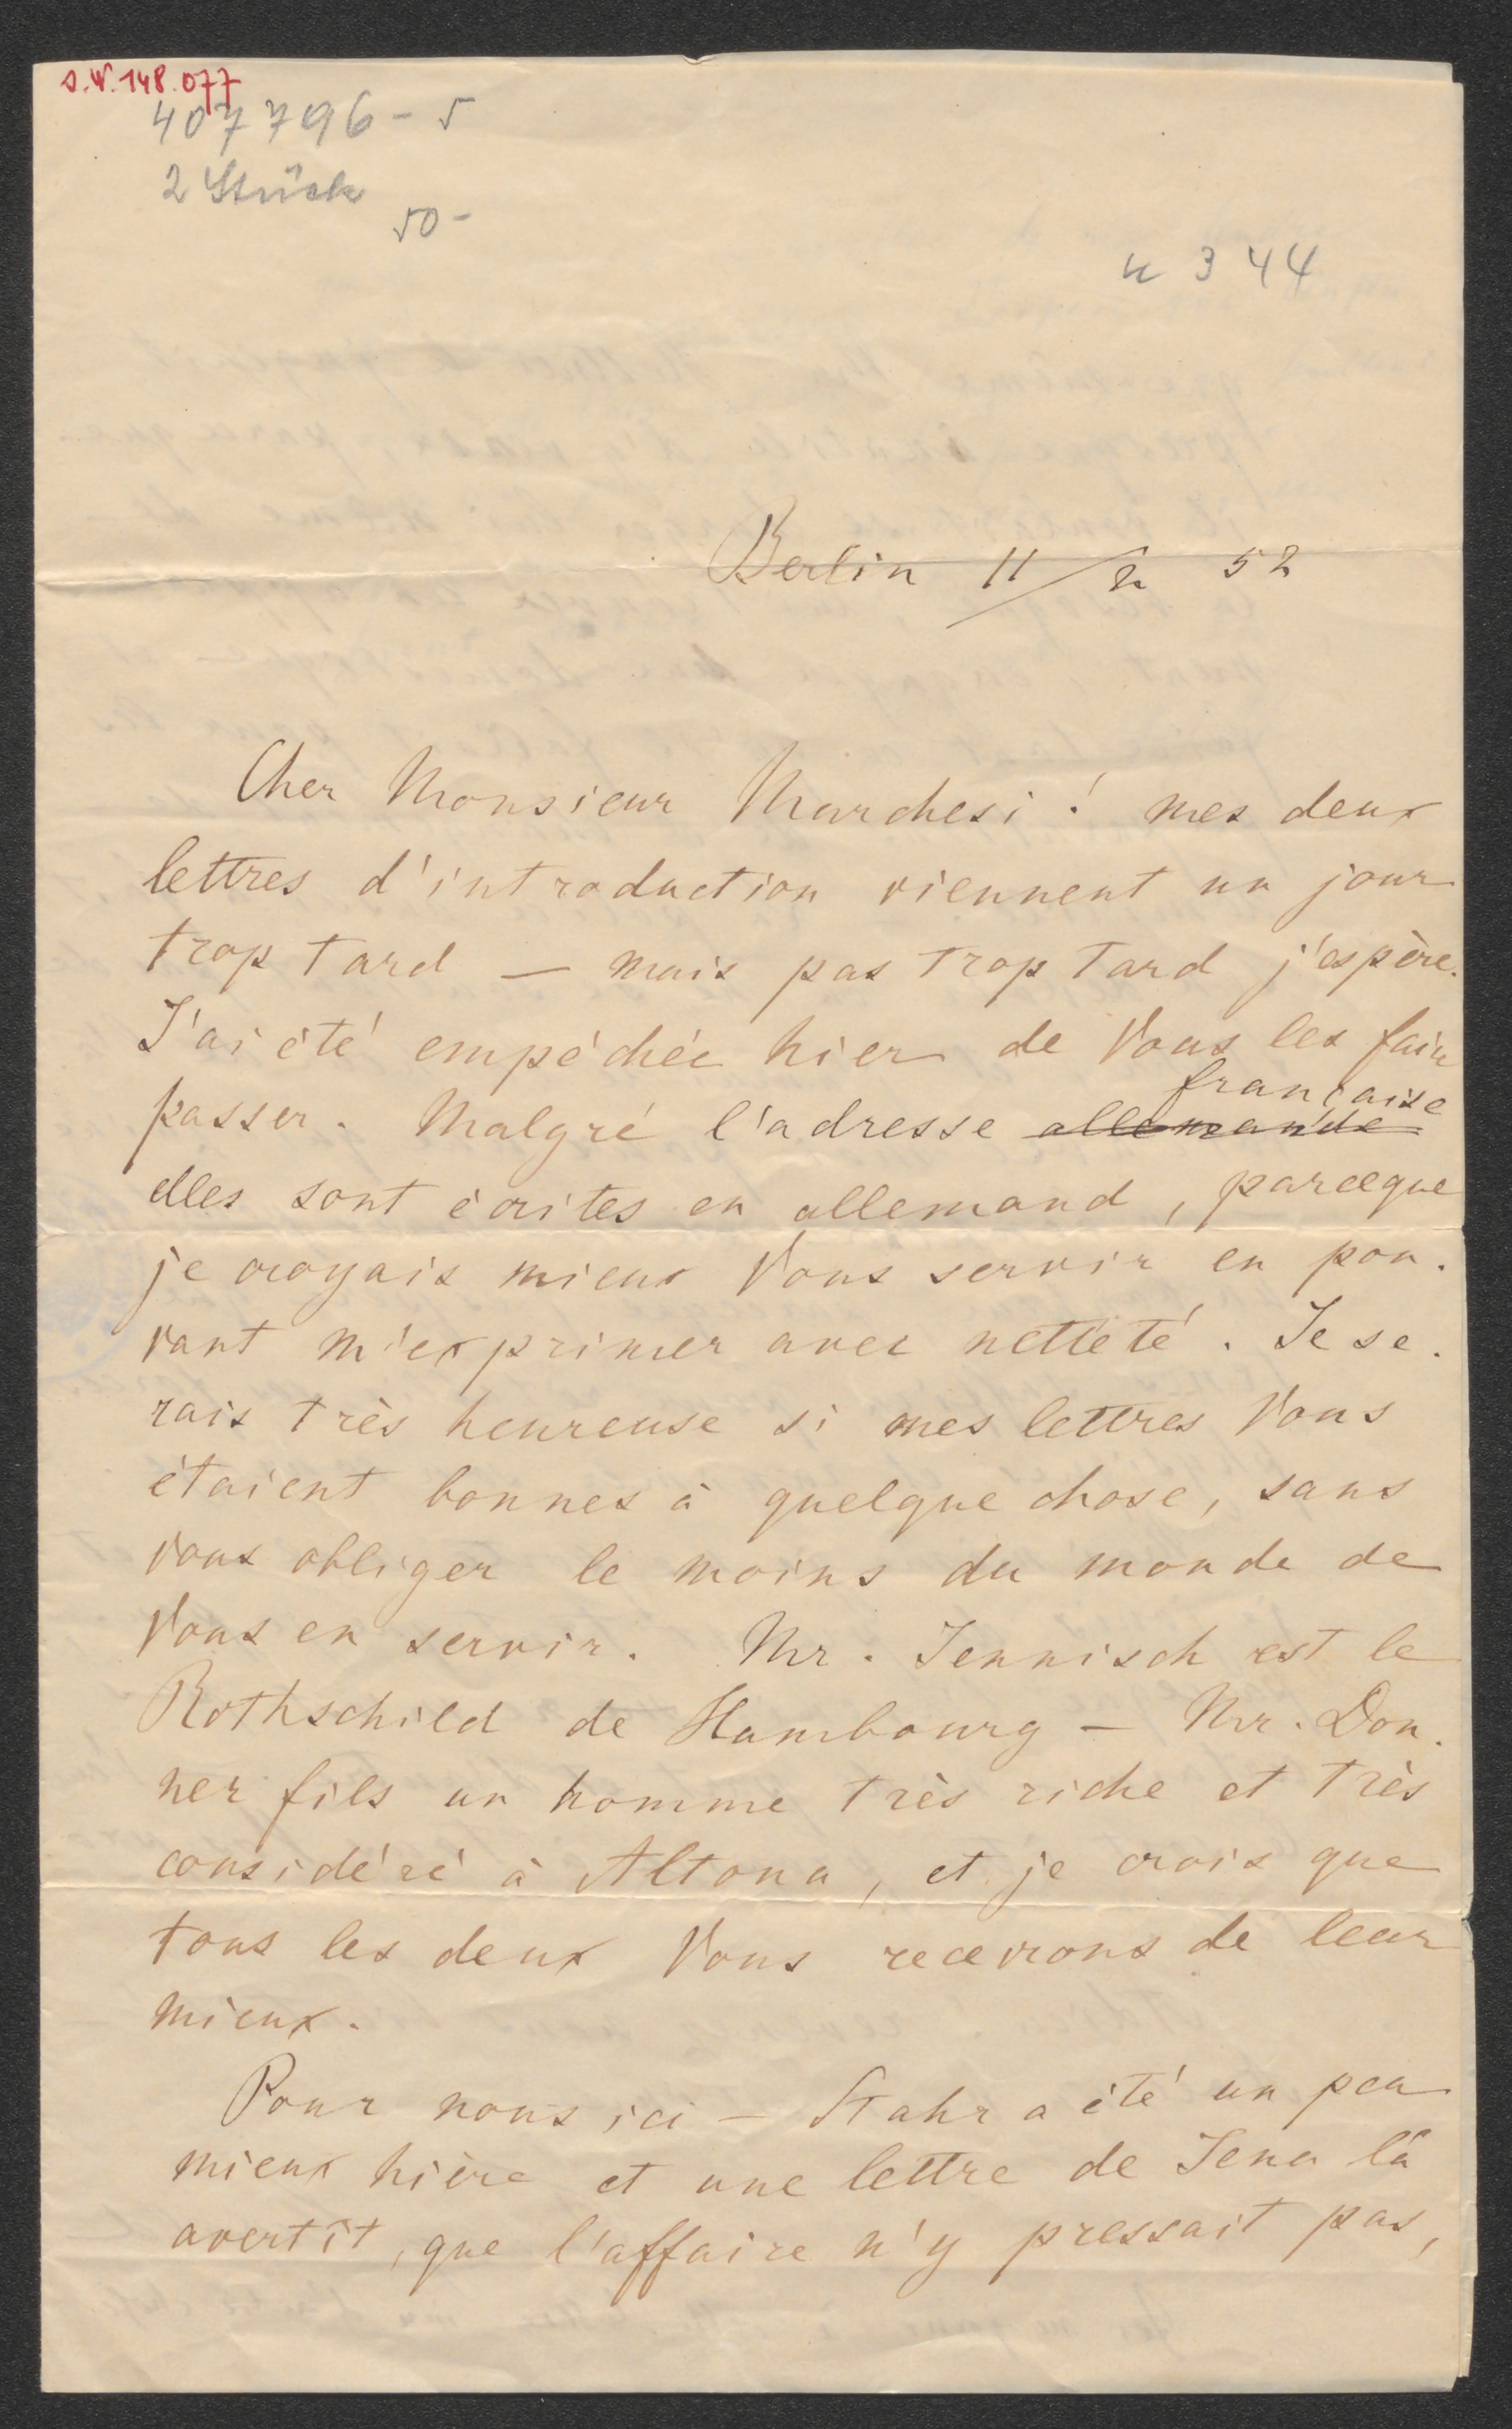 J.N. 148.077
407796-5
2 Stück
50-
n 344
Berlin 11/2 52
Cher Monsieur Marchesi! mes deux
lettres d'introduction viennent un jour
trop tard — mais pas trop tard j'espère.
J'ai été empéchée hier de Vous les faire
française
passer. Malgré l'adresse allemande
elles sont écrites en allemand, parceque
je croyais mieux Vous servir en pou-
vant m'exprimer avec netteté. Je se-
rais très heureuse si mes lettres Vous
étaient bonnes à quelque chose, sans
vous obliger le moins du monde de
Vous en servir. Mr. Jennisch est le
Rothschild de Hambourg — Mr. Don-
ner fils un homme très riche et très
considéré à Altona, et je crois que
tous les deux Vous recevrons de leur
mieux.
Pour nous ici — Stahr a été un peu
mieux hière et une lettre de Jena l'a
avertît, que l'affaire n'y pressait pas,